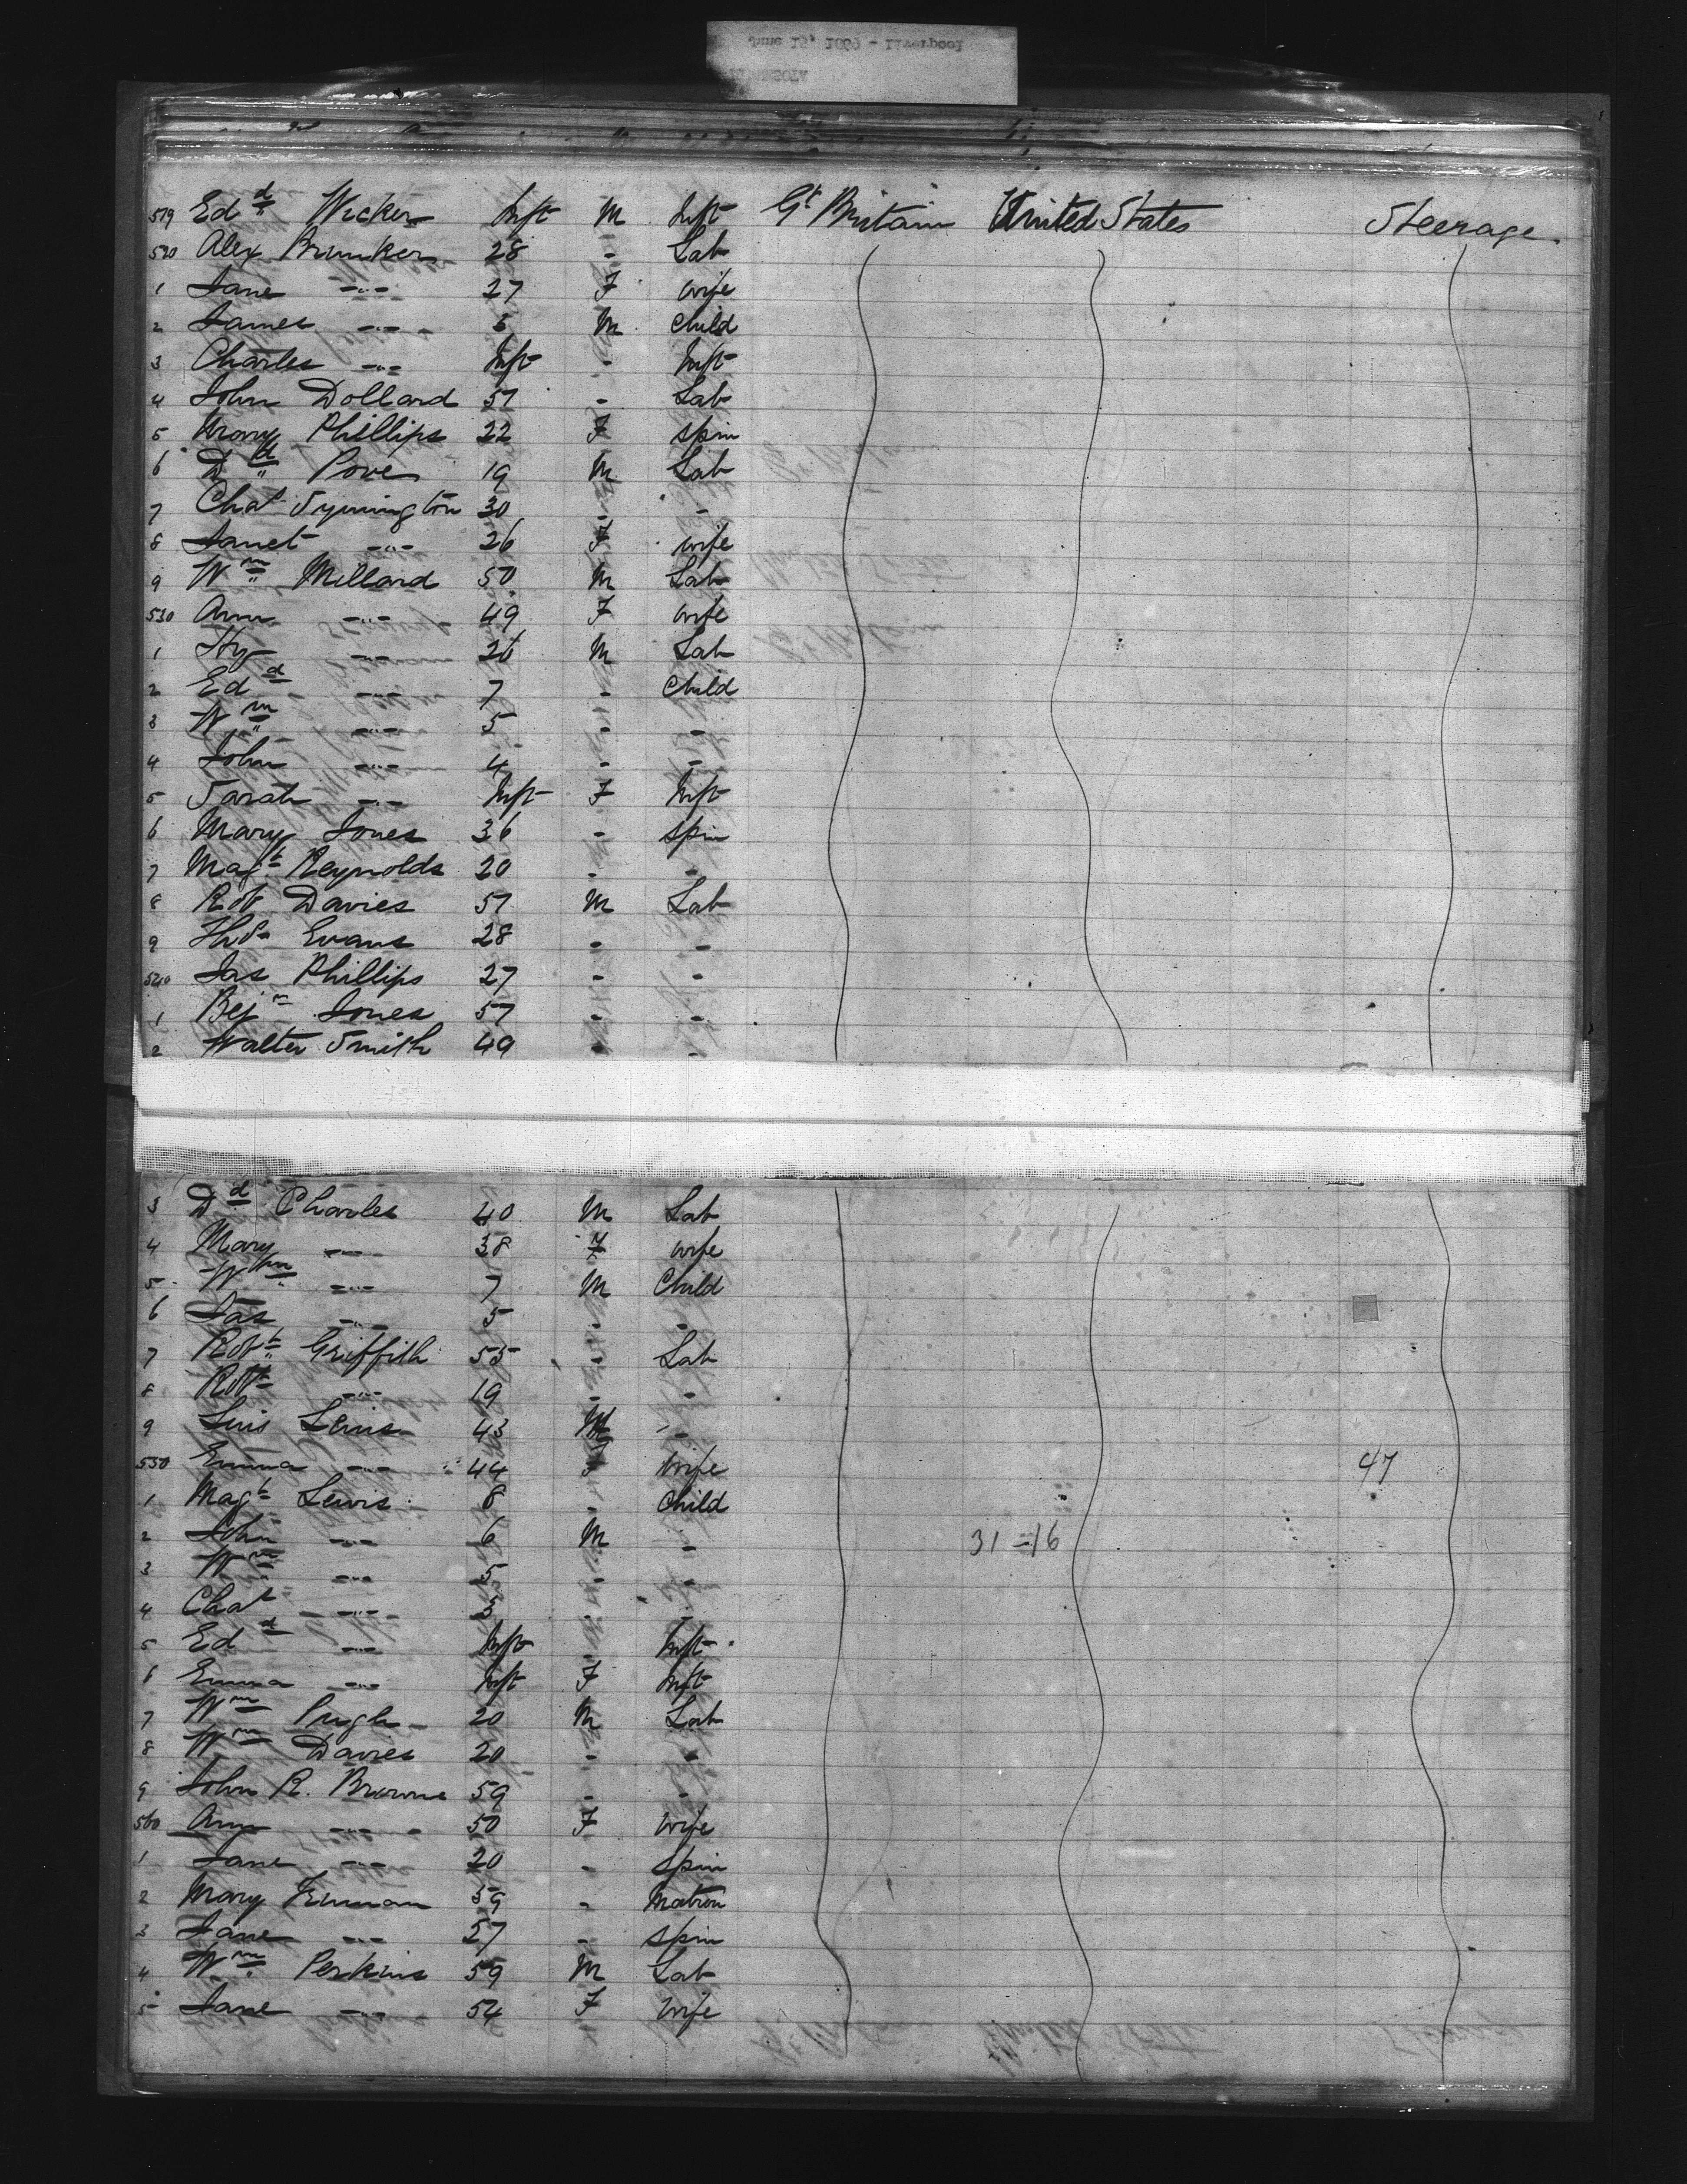 June 15, 1869 - Liverpool
519 Edd Wicker Inft M Inft Gt Britain United States Steerage.
520 Alex Brunker 28 - Lab
1 Jane -"- 27 F wife
2 James -"- 5 M Child
3 Charles -"- Inft - Inft
4 John Dollard 57 - Lab
5 Mary Phillips 22 F spin
6 Dd Pove 19 M Lab
7 Chas Symington 30 - -
8 Janet -"- 26 F wife
9 Wm Millard 50 M Lab
530 Ann -"- 49 F wife
1 Hy -"- 26 M Lab
2 Edd -"- 7 - Child
3 Wm -"- 5 - -
4 John -"- 4 - -
5 Sarah -"- Inft F Inft
6 Mary Jones 36 - spin
7 Magt Reynolds 20 - -
8 Robt Davies 57 M Lab
9 Thos Evans 28 - -
540 Jas Phillips 27 - -
1 Bejn Jones 57 - -
2 Walter Smith 49 - -
3 Dd Charles 40 M Lab
4 Mary -"- 38 F wife
5 Wm -"- 7 M Child
6 Jas -"- 5 - -
7 Robt Griffith 55 - Lab
8 Robt -"- 19 - -
9 Lewis 43 M -
550 Emma -"- 44 F Wife 47
1 Magt Lewis 8 - Child
2 John -"- 6 M - 31 = 16
3 Wm -"- 5 - -
4 Chas -"- 3 - -
5 Edd -"- Inft - Inft
6 Emma -"- Inft F Inft
7 Wm Pugh 20 M Lab
8 Wm Davies 20 - -
9 John R. Browne 59 - -
560 Ann -"- 50 F wife
1 Jane -"- 20 - spin
2 Mary 59 - Matron
3 Jane -"- 27 - spin
4 Wm Perkins 59 M Lab
5 Jane -"- 54 F wife